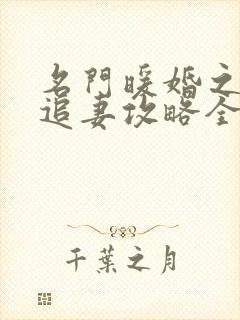 名門暖婚之
追妻攻略全
千葉之月